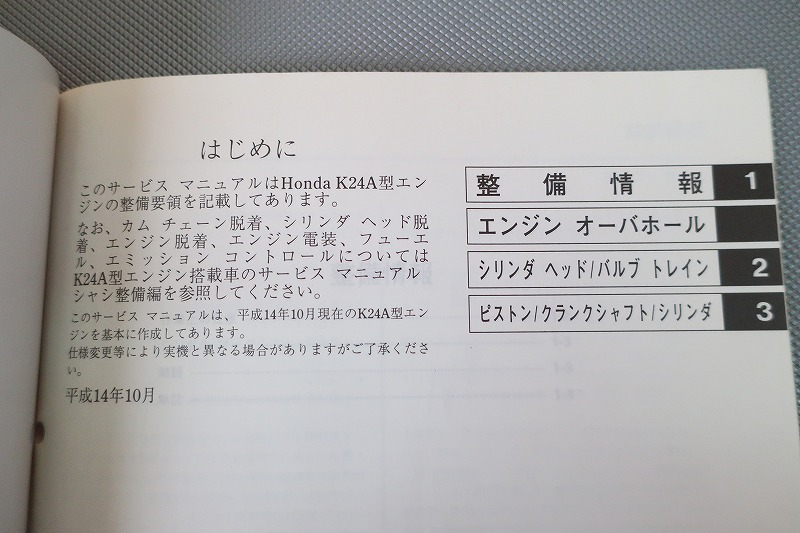 はじめに
このサービス マニュアルはHonda K24A型エン
ジンの整備要領を記載してあります。
なお、カム チェーン脱着、シリンダ ヘッド脱
着、エンジン脱着、エンジン電装、フューエ
ル、エミッション コントロールについては
K24A型エンジン搭載車のサービス マニュアル
シャシ整備編を参照してください。
このサービス マニュアルは、平成14年10月現在のK24A型エン
ジンを基本に作成してあります。
仕様変更等により実機と異なる場合がありますがご了承くださ
い。
平成14年10月
整備情報 1
エンジン オーバホール
シリンダ ヘッド/バルブ トレイン 2
ピストン/クランクシャフト/シリンダ 3